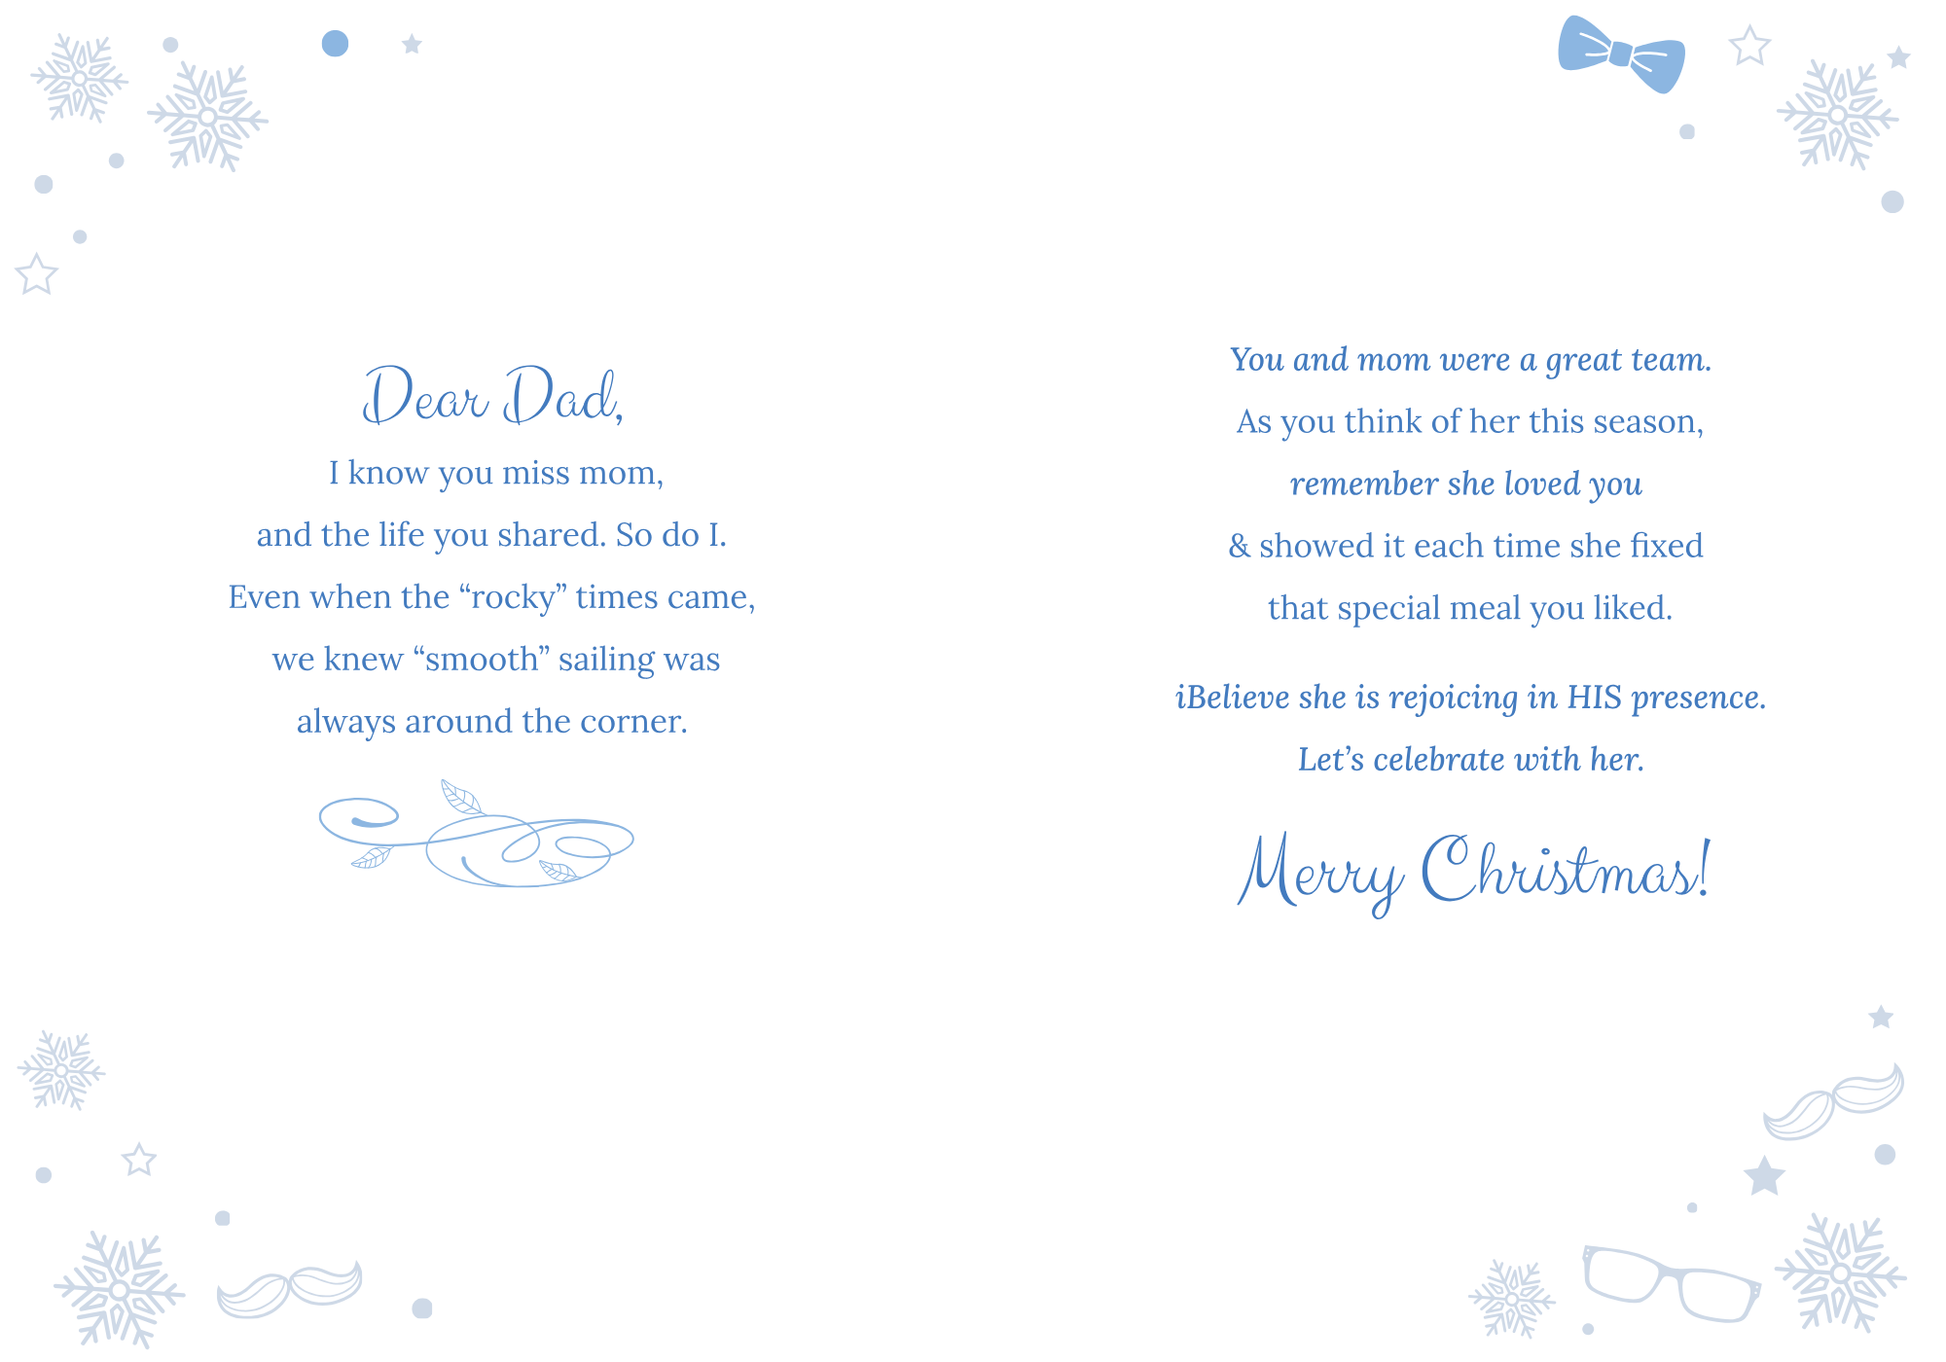 Dear Dad,
I know you miss mom,
and the life you shared. So do I.
Even when the “rocky” times came,
we knew “smooth” sailing was
always around the corner.
You and mom were a great team.
As you think of her this season,
remember she loved you
& showed it each time she fixed
that special meal you liked.
iBelieve she is rejoicing in HIS presence.
Let’s celebrate with her.
Merry Christmas!